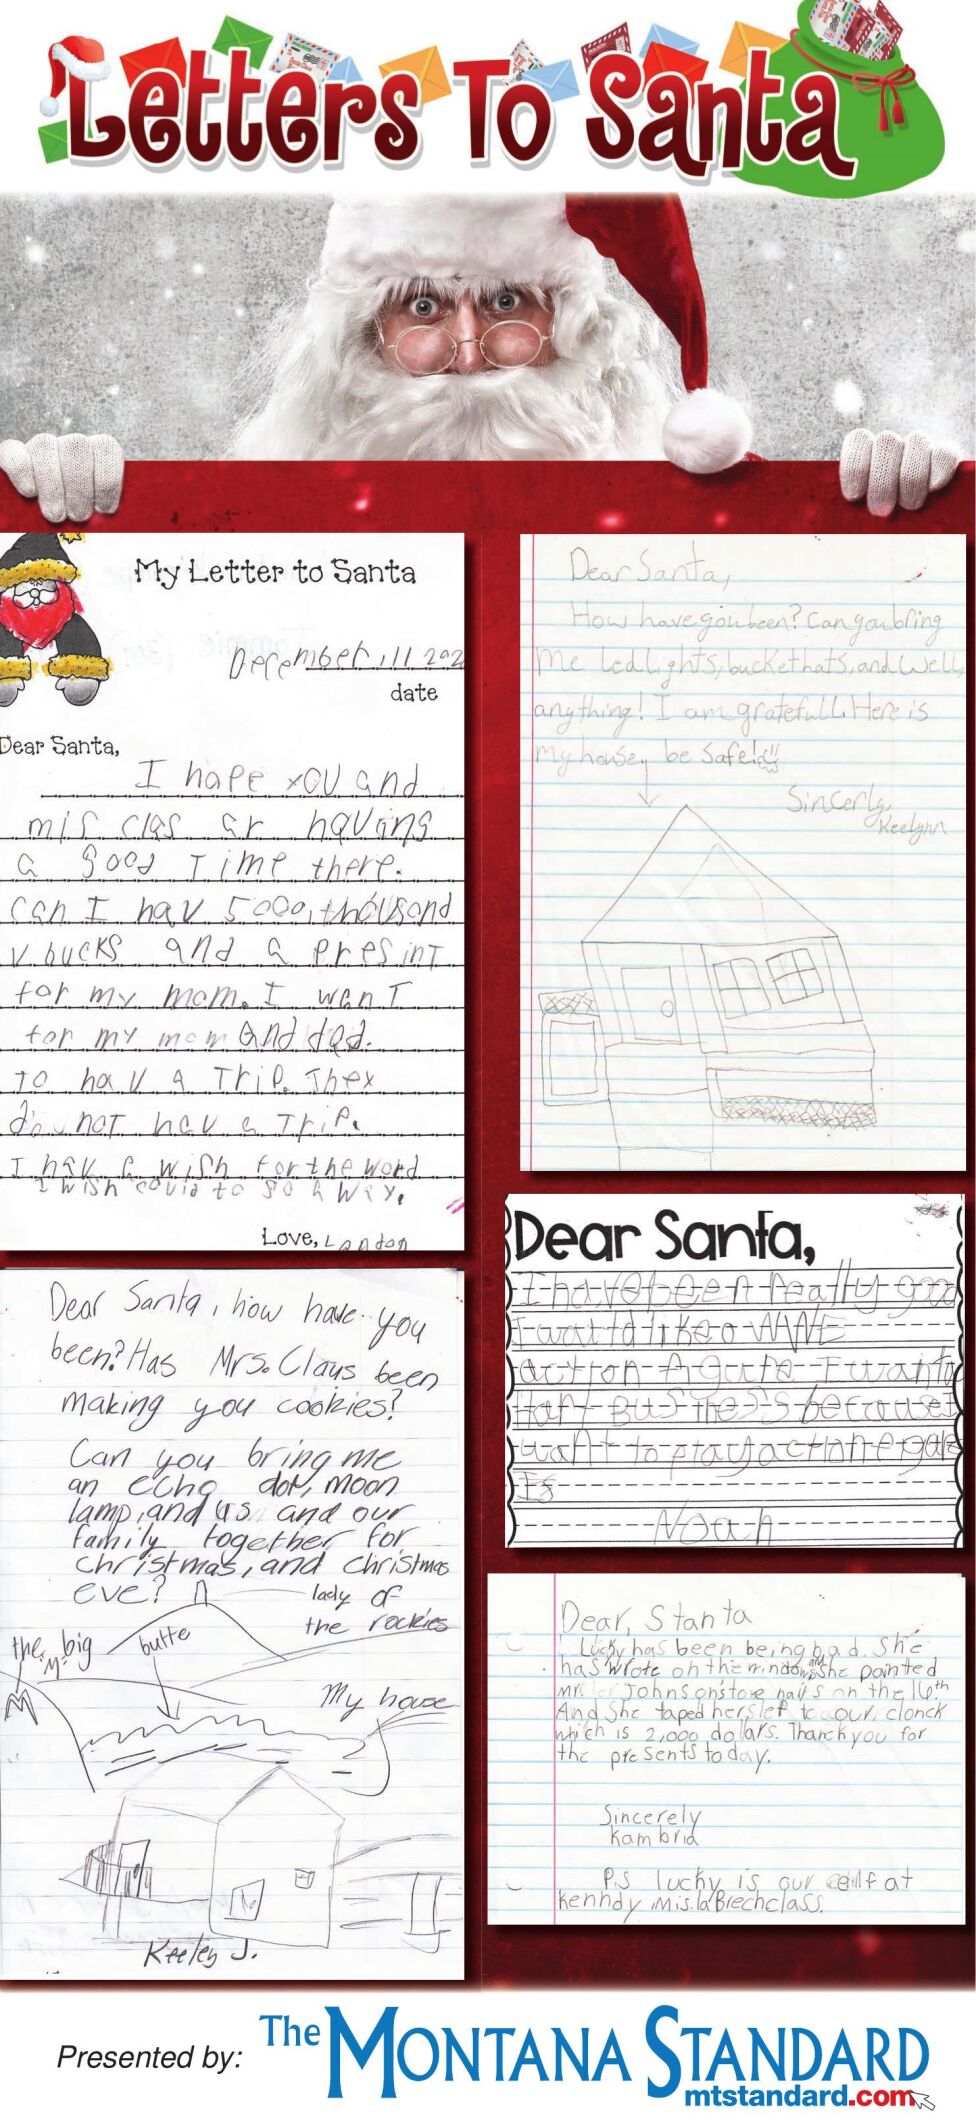 Letters To Santa
My Letter to Santa
December 11 202
date
Dear Santa,
I hope you and
mis clas ar having
a good Time there.
can I hav 5000, thousand
v bucks and a presint
for my mom. I want
for my mom and dad.
to hav a Trip. They
do not hav a Trip.
I hav a wish for the word
I wish could to go a way.
Love, Landon
Dear Santa,
How have you been? Can you bring
me led lights, bucket hats, and well,
anything! I am gratefull. Here is
my house, be safe!
Sincerly,
Keelynn
Dear Santa, how have you
been? Has Mrs. Claus been
making you cookies?
Can you bring me
an echo dot, moon
lamp, and us and our
family together for
christmas, and christmas
eve?
lady of
the rockies
the big
"M"
butte
My house
Keeley J.
Dear Santa,
I have been really good
I would like a WWE
action figure I want
because I
want to play action
Noah
Dear, Stanta
Lucky has been being bad. She
has wrote on the windows and she painted
mr. Johnson's toe nails on the 16th
And she taped herslef to our clonck
which is 2,000 dollars. Thanck you for
the presents today.
Sincerely
Kambria
P.S lucky is our elf at
kenndy Mis. laBrech class.
Presented by:
The Montana Standard
mtstandard.com